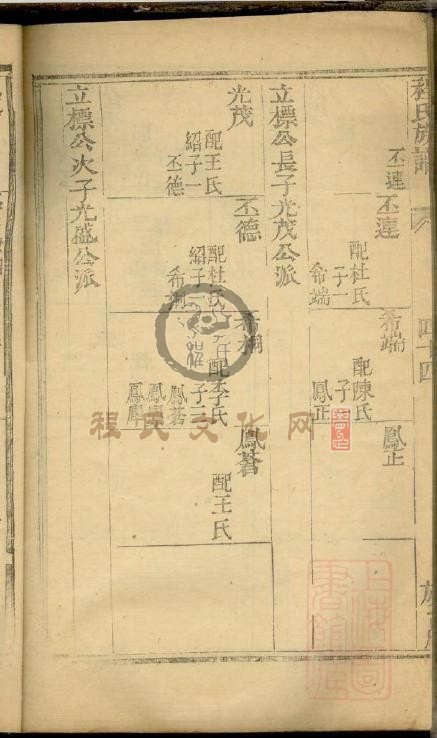 程氏族譜
四十四
丕連
丕連
配杜氏
子一
希端
希端
配陳氏
子
鳳正
鳳正
立標公長子光茂公派
光茂
配王氏
紹子一
丕德
丕德
配杜氏
紹子一
希桐
希桐
配李氏
子三
鳳蒼
鳳
鳳
鳳蒼
配王氏
立標公次子光盛公派
程氏文化网
上海圖書館藏